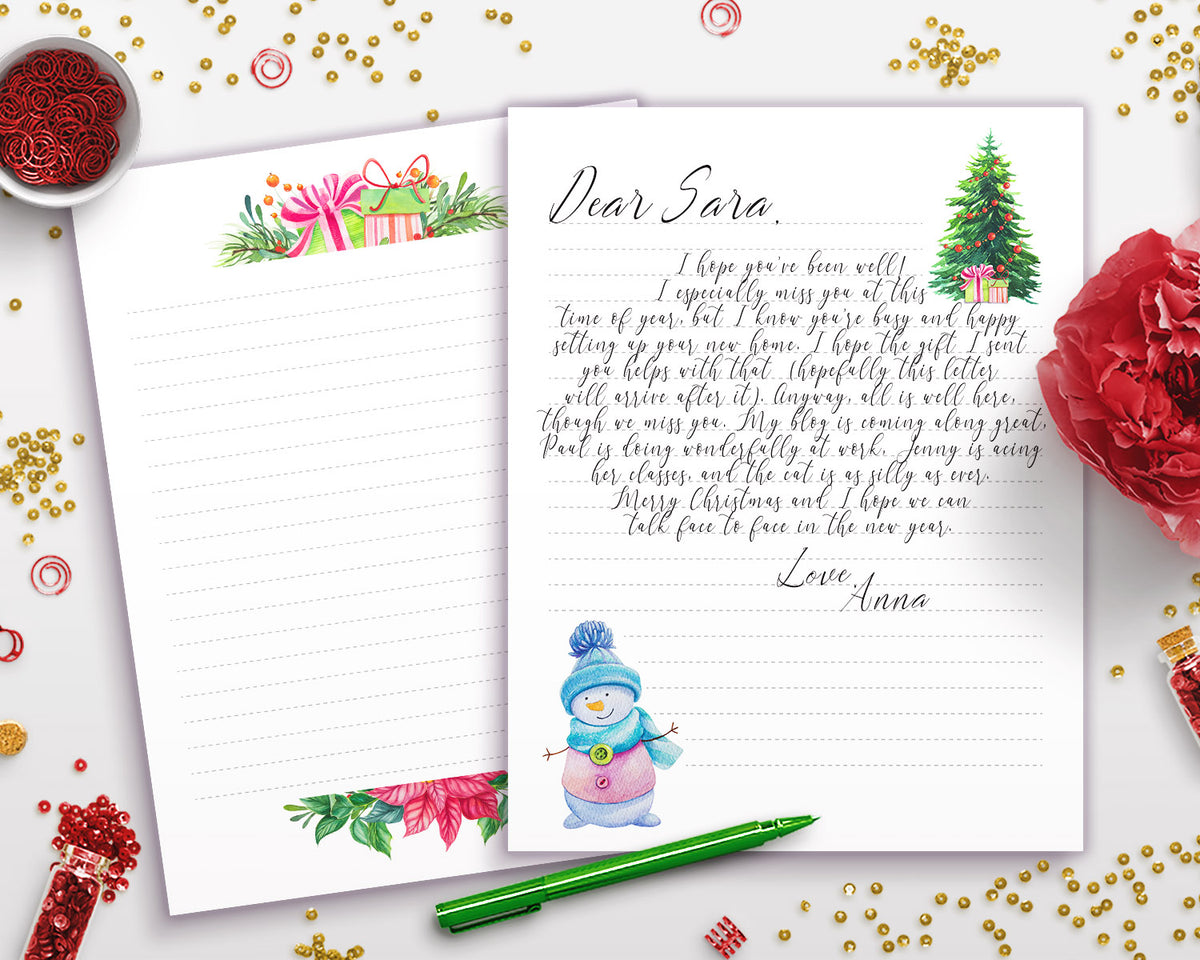 Dear Sara,
I hope you've been well!
I especially miss you at this
time of year, but I know you're busy and happy
setting up your new home. I hope the gift I sent
you helps with that (hopefully this letter
will arrive after it). Anyway, all is well here,
though we miss you. My blog is coming along great,
Paul is doing wonderfully at work, Jenny is acing
her classes, and the cat is as silly as ever.
Merry Christmas and I hope we can
talk face to face in the new year.
Love,
Anna